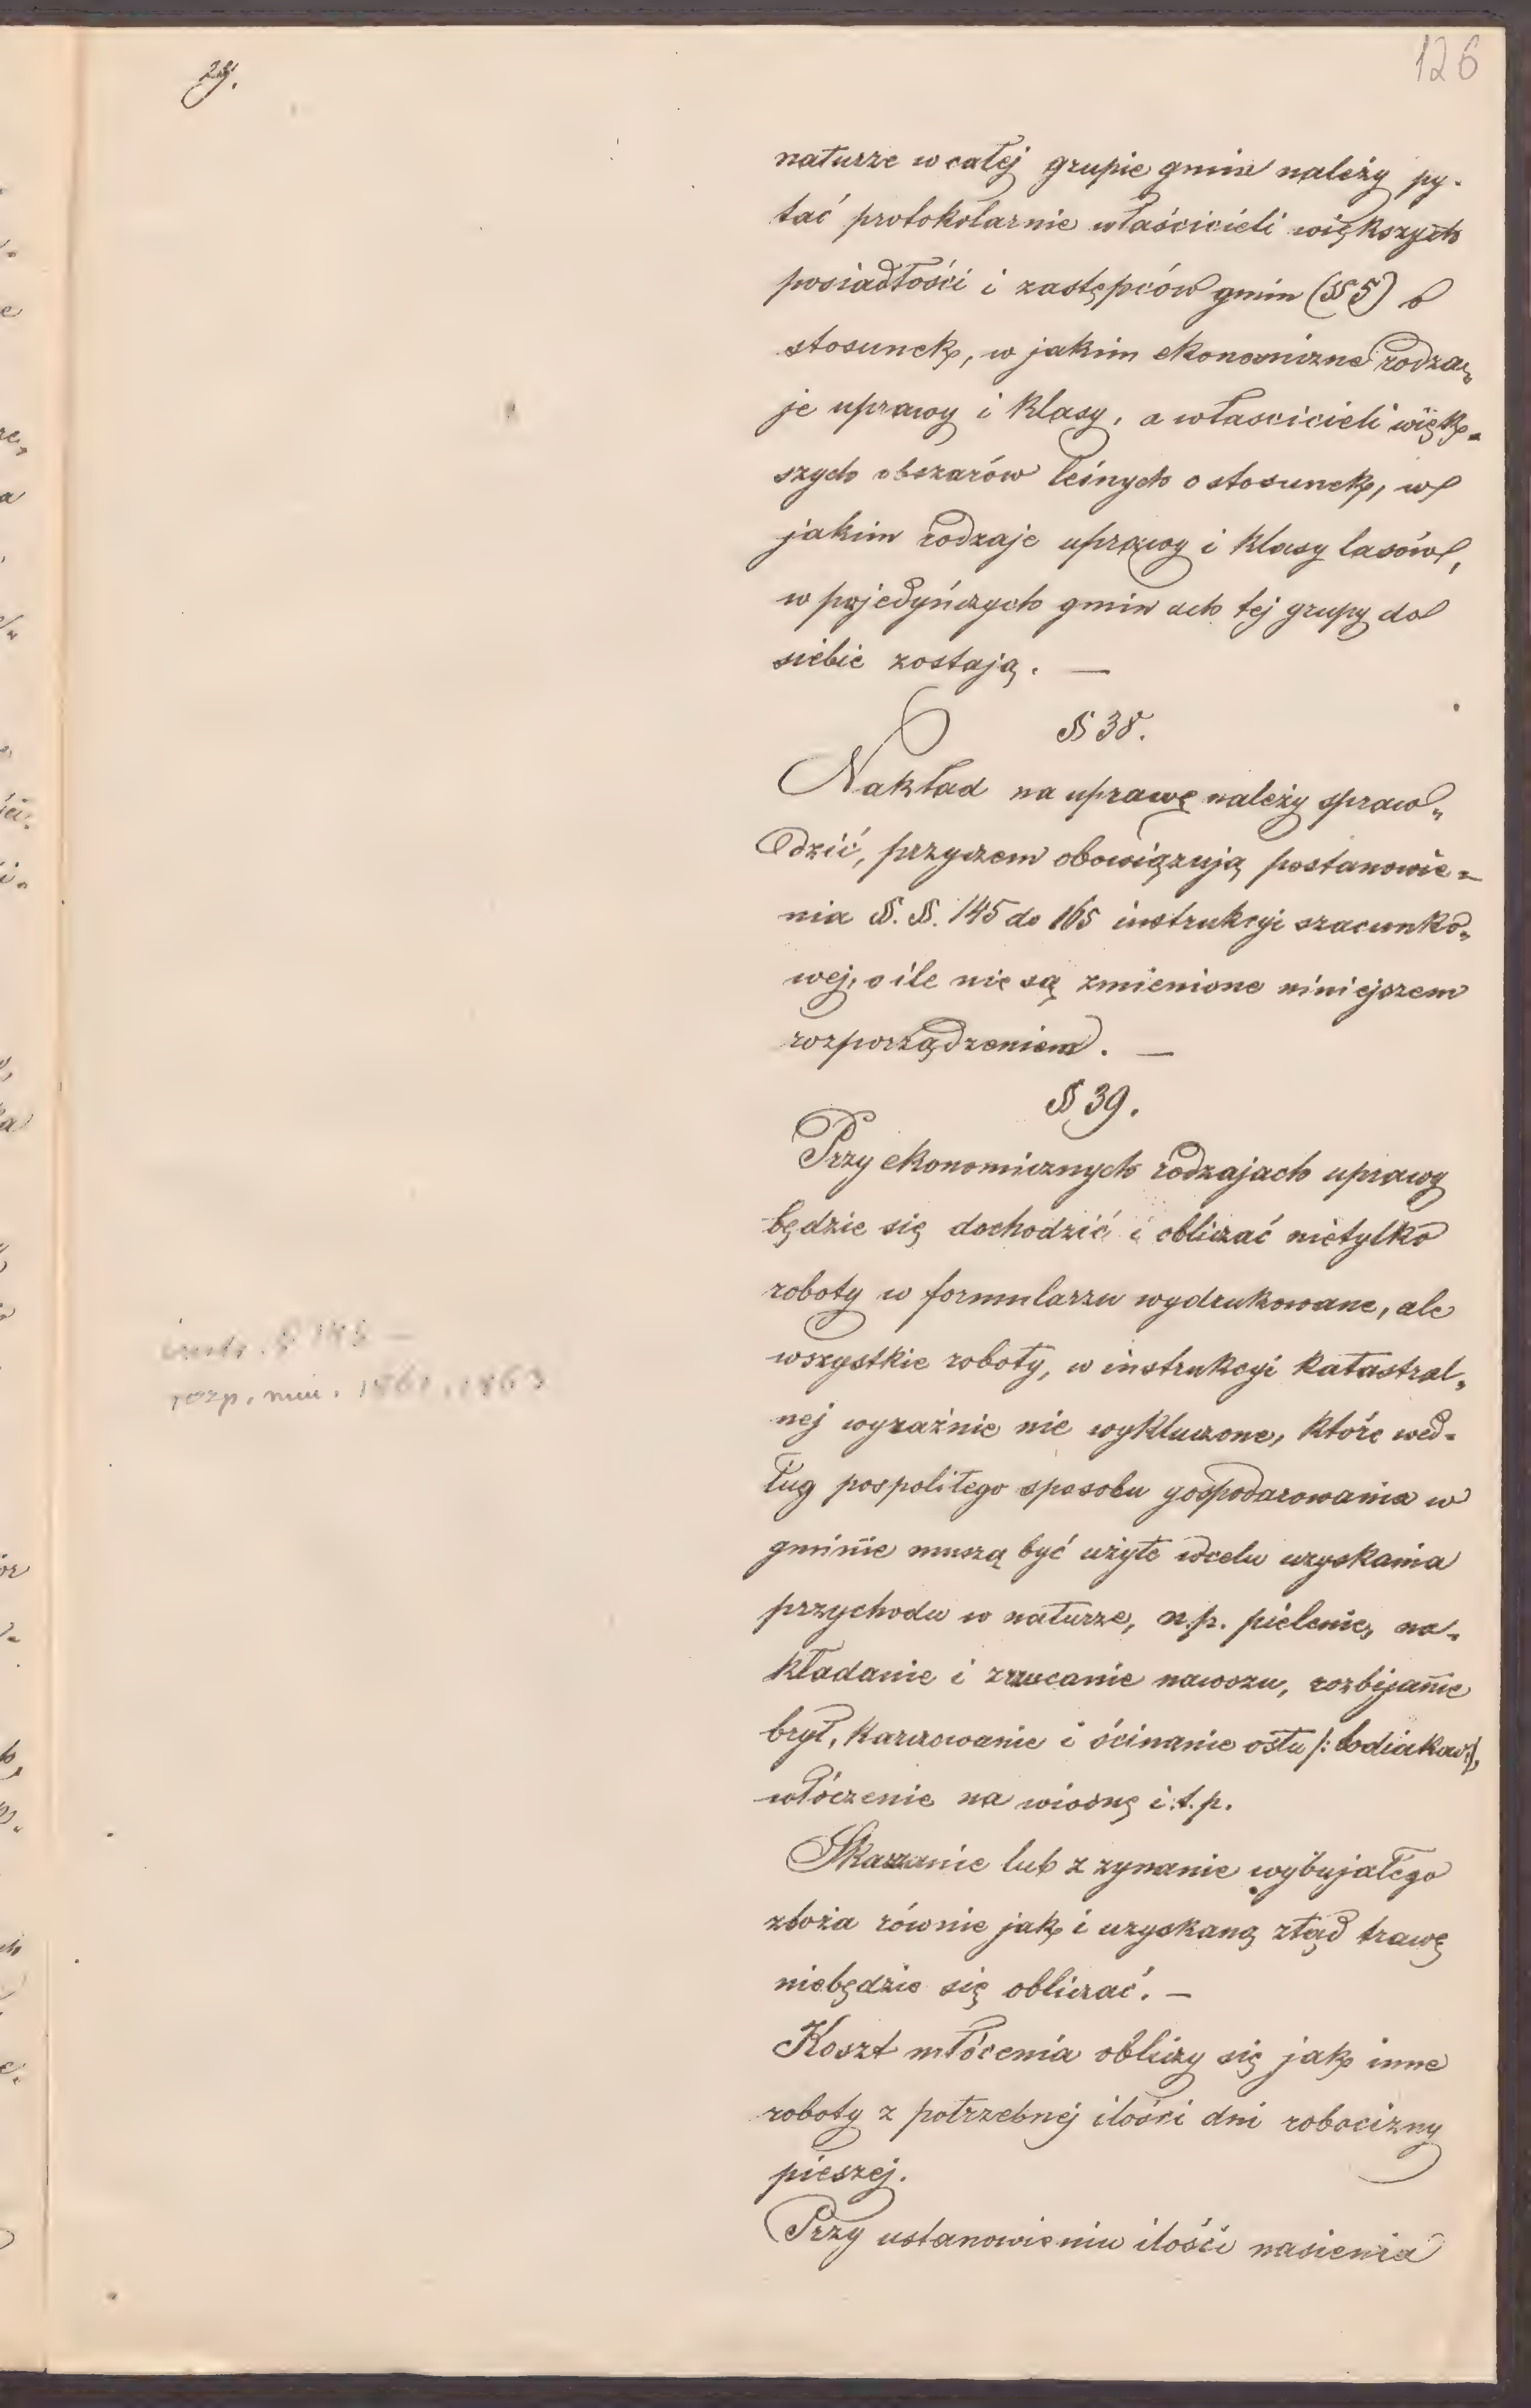 29.
126
naturze w całej grupie gmin należy py-
tać protokolarnie właścicieli większych
posiadłości i zastępców gmin (§ 5) o
stosunek, w jakim ekonomiczne rodza„
je uprawy i klasy, a właścicieli więk-
szych obszarów leśnych o stosunek, w
jakim rodzaje uprawy i klasy lasów,
w pojedyńczych gminach tej grupy do
siebie zostają. —
§ 38.
Nakład na uprawę należy spraw„
dzić, przyczem obowiązują postanowie-
nia §. §. 145 do 165 instrukcyi szacunko„
wej, o ile nie są zmienione niniejszem
rozporządzeniem. —
§ 39.
Przy ekonomicznych rodzajach uprawy
będzie się dochodzić i obliczać nietylko
roboty w formularzu wydrukowane, ale
wszystkie roboty, w instrukcyi katastral„
nej wyraźnie nie wykluczone, które wed-
ług pospolitego sposobu gospodarowania w
gminie muszą być użyte w celu uzyskania
przychodu w naturze, n.p. pielenie, na-
kładanie i zrzucanie nawozu, rozbijanie
brył, karczowanie i ścinanie ostu /: bodiaków :/,
włóczenie na wiosnę i.t.p.
Skaszanie lub zżynanie wybujałego
zboża równie jak i uzyskaną ztąd trawę
niebędzie się obliczać. —
Koszt młócenia obliczy się jak inne
roboty z potrzebnej ilości dni robocizny
pieszej.
Przy ustanowieniu ilości nasienia
instr. § 145 —
rozp. min. 1861, 1863